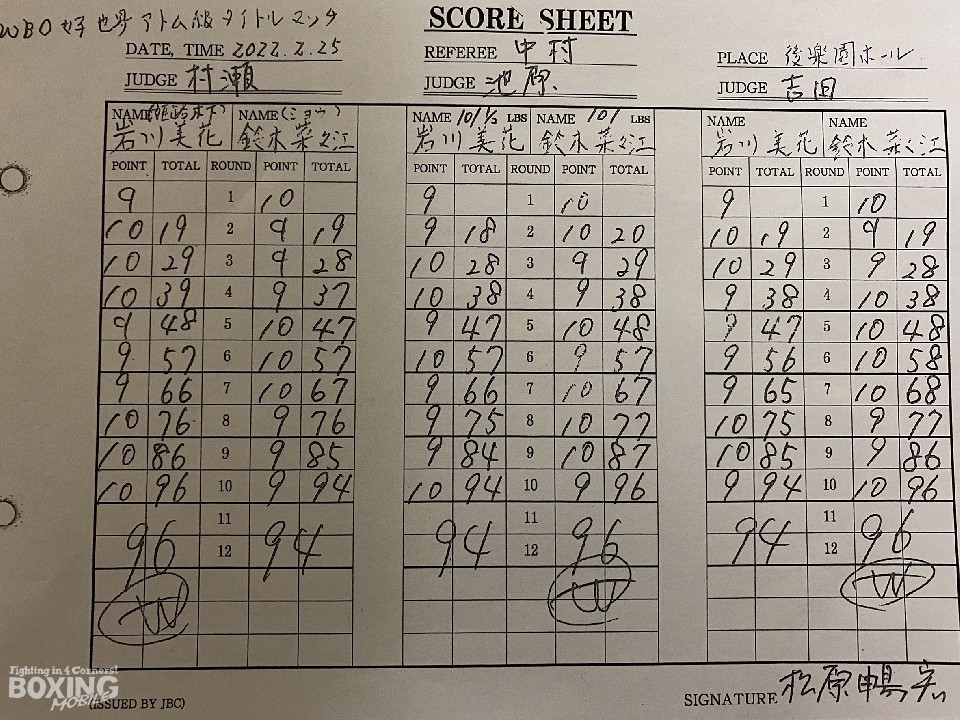 WBO 女子世界アトム級タイトルマッチ
SCORE SHEET
DATE, TIME 2022.2.25 REFEREE 中村 PLACE 後楽園ホール
JUDGE 村瀬 JUDGE 池原 JUDGE 吉田
NAME NAME (ショウ) NAME 101 1/2 LBS NAME 101 LBS NAME NAME
岩川美花 鈴木菜々江 岩川美花 鈴木菜々江 岩川美花 鈴木菜々江
POINT TOTAL ROUND POINT TOTAL POINT TOTAL ROUND POINT TOTAL POINT TOTAL ROUND POINT TOTAL
9 1 10 9 1 10 9 1 10
10 19 2 9 19 9 18 2 10 20 10 19 2 9 19
10 29 3 9 28 10 28 3 9 29 10 29 3 9 28
10 39 4 9 37 10 38 4 9 38 9 38 4 10 38
9 48 5 10 47 9 47 5 10 48 9 47 5 10 48
9 57 6 10 57 10 57 6 9 57 9 56 6 10 58
9 66 7 10 67 9 66 7 10 67 9 65 7 10 68
10 76 8 9 76 9 75 8 10 77 10 75 8 9 77
10 86 9 9 85 9 84 9 10 87 10 85 9 9 86
10 96 10 9 94 10 94 10 9 96 9 94 10 10 96
11 11 11
96 12 94 94 12 96 94 12 96
W W W
Fighting in 4 Corners!
BOXING
MOBILE
(ISSUED BY JBC)
SIGNATURE 松原暢宏